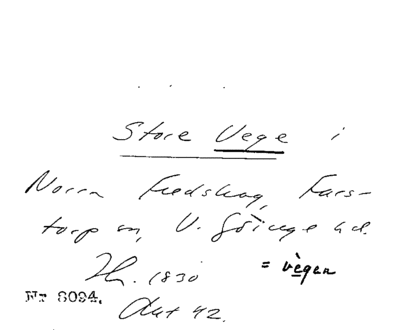 Store Vege i
Norra Fredskog, Fars-
torp sn, V. Göinge hd.
Hr. 1830 = vègen
Nr 8094.
Akt 42.